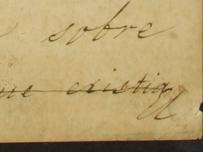 sobre
que existia